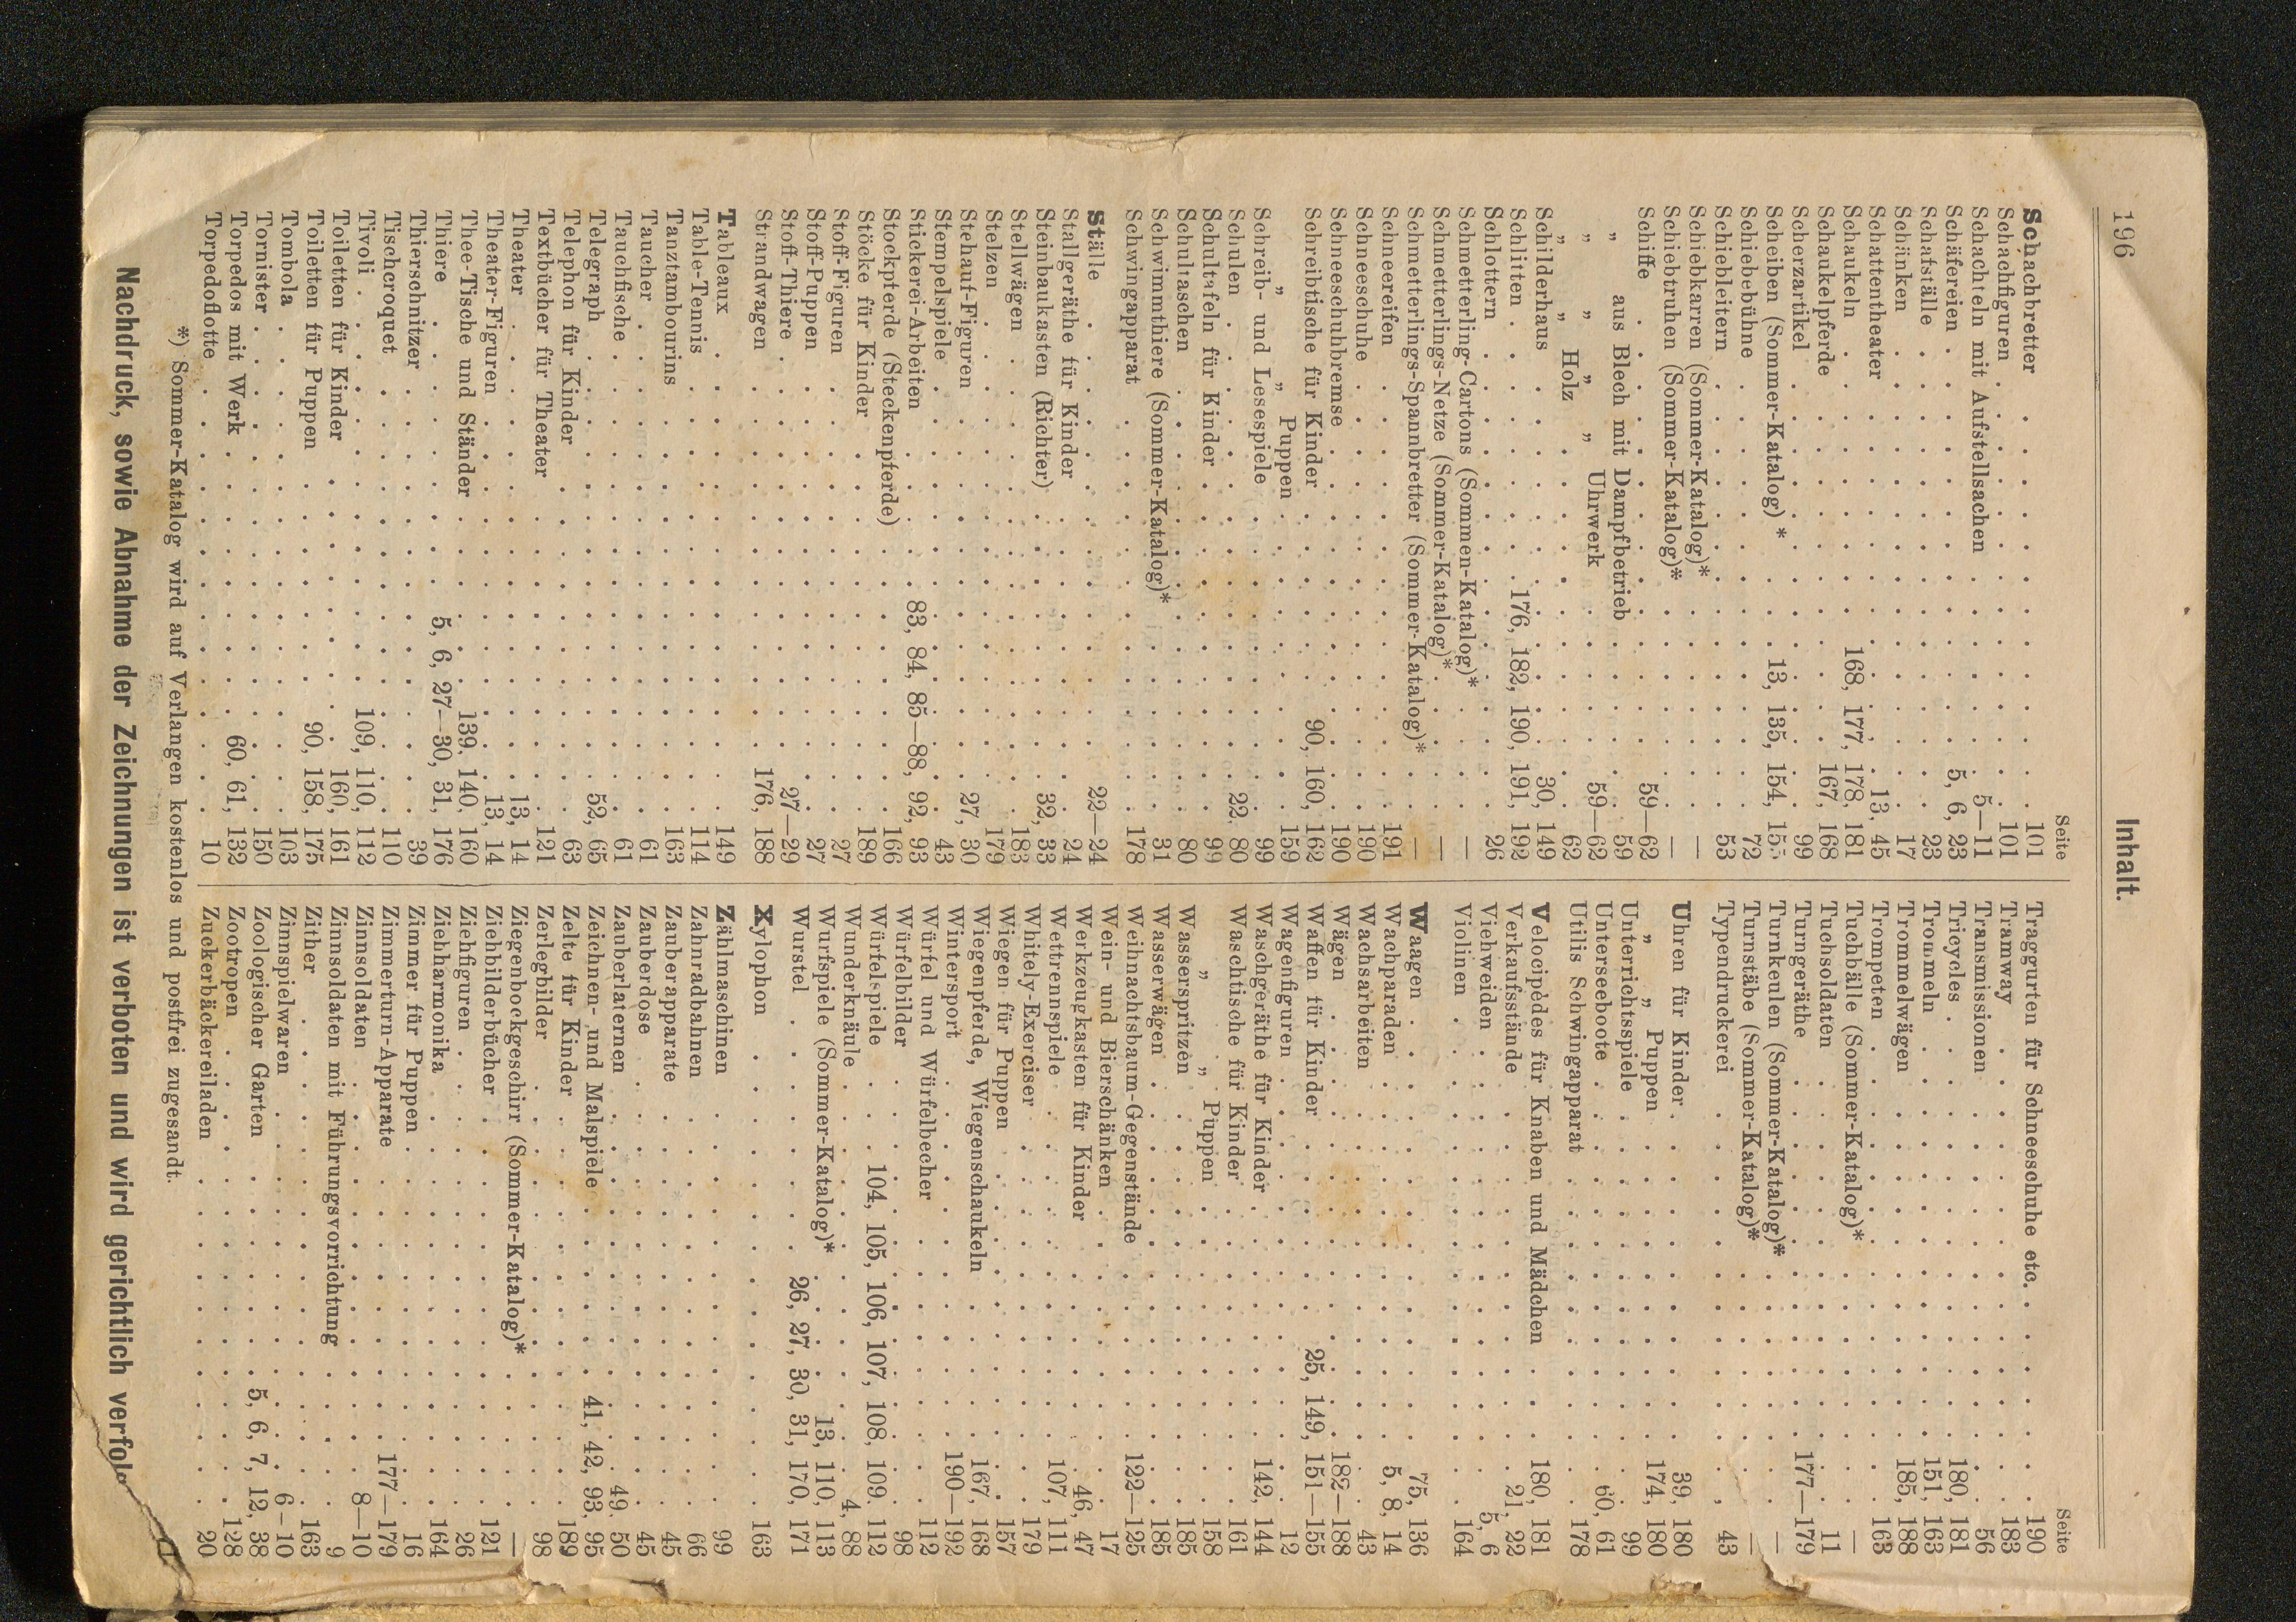 196
Inhalt.
Seite
Schachbretter . . . . . . . . . . 101
Schachfiguren . . . . . . . . . . 101
Schachteln mit Aufstellsachen . . . . . 5—11
Schäfereien . . . . . . . . 5, 6, 23
Schafställe . . . . . . . . . . 23
Schänken . . . . . . . . . . 17
Schattentheater . . . . . . . . 13, 45
Schaukeln . . . . . . 168, 177, 178, 181
Schaukelpferde . . . . . . . . 167, 168
Scherzartikel . . . . . . . . . . 99
Scheiben (Sommer-Katalog) * . . 13, 135, 154, 155
Schiebebühne . . . . . . . . . . 72
Schiebleitern . . . . . . . . . . 53
Schiebkarren (Sommer-Katalog)* . . . . . —
Schiebtruhen (Sommer-Katalog)* . . . . . —
Schiffe . . . . . . . . . . 59—62
„ aus Blech mit Dampfbetrieb . . . . 59
„ „ „ „ Uhrwerk . . . . 59—62
„ „ Holz . . . . . . . . . 62
Schilderhaus . . . . . . . . . 30, 149
Schlitten . . . . . 176, 182, 190, 191, 192
Schlottern . . . . . . . . . . 26
Schmetterling-Cartons (Sommen-Katalog)* . . —
Schmetterlings-Netze (Sommer-Katalog)* . . —
Schmetterlings-Spannbretter (Sommer-Katalog)* . —
Schneereifen . . . . . . . . . . 191
Schneeschuhe . . . . . . . . . . 190
Schneeschuhbremse . . . . . . . . 190
Schreibtische für Kinder . . . . 90, 160, 162
„ „ Puppen . . . . . . 159
Schreib- und Lesespiele . . . . . . . 99
Schulen . . . . . . . . . . 22, 80
Schultafeln für Kinder . . . . . . . 99
Schultaschen . . . . . . . . . . 80
Schwimmthiere (Sommer-Katalog)* . . . . 31
Schwingapparat . . . . . . . . . 178
Ställe . . . . . . . . . . 22—24
Stallgeräthe für Kinder . . . . . . . 24
Steinbaukasten (Richter) . . . . . . 32, 33
Stellwägen . . . . . . . . . . 183
Stelzen . . . . . . . . . . 179
Stehauf-Figuren . . . . . . . . 27, 30
Stempelspiele . . . . . . . . . . 43
Stickerei-Arbeiten . . . 83, 84, 85—88, 92, 93
Stockpferde (Steckenpferde) . . . . . . 166
Stöcke für Kinder . . . . . . . . 189
Stoff-Figuren . . . . . . . . . . 27
Stoff-Puppen . . . . . . . . . . 27
Stoff-Thiere . . . . . . . . . 27—29
Strandwagen . . . . . . . . 176, 188
Tableaux . . . . . . . . . . 149
Table-Tennis . . . . . . . . . . 114
Tanztambourins . . . . . . . . . 163
Taucher . . . . . . . . . . 61
Tauchfische . . . . . . . . . . 61
Telegraph . . . . . . . . . . 52, 65
Telephon für Kinder . . . . . . . . 63
Textbücher für Theater . . . . . . . 121
Theater . . . . . . . . . . 13, 14
Theater-Figuren . . . . . . . . 13, 14
Thee-Tische und Ständer . . . . 139, 140, 160
Thiere . . . . . . 5, 6, 27—30, 31, 176
Thierschnitzer . . . . . . . . . . 39
Tischcroquet . . . . . . . . . . 110
Tivoli . . . . . . . . 109, 110, 112
Toiletten für Kinder . . . . . . 160, 161
Toiletten für Puppen . . . . . 90, 158, 175
Tombola . . . . . . . . . . 103
Tornister . . . . . . . . . . 150
Torpedos mit Werk . . . . . . 60, 61, 132
Torpedoflotte . . . . . . . . . . 10
Seite
Traggurten für Schneeschuhe etc. . . . . 190
Tramway . . . . . . . . . . 183
Transmissionen . . . . . . . . . . 56
Tricycles . . . . . . . . . . 180, 181
Trommeln . . . . . . . . . 151, 163
Trommelwägen . . . . . . . . 185, 188
Trompeten . . . . . . . . . . 163
Tuchbälle (Sommer-Katalog)* . . . . . —
Tuchsoldaten . . . . . . . . . . 11
Turngeräthe . . . . . . . . . 177—179
Turnkeulen (Sommer-Katalog)* . . . . . —
Turnstäbe (Sommer-Katalog)* . . . . . —
Typendruckerei . . . . . . . . . 43
Uhren für Kinder . . . . . . . . 39, 180
„ „ Puppen . . . . . . . 174, 180
Unterrichtsspiele . . . . . . . . . 99
Unterseeboote . . . . . . . . . 60, 61
Utilis Schwingapparat . . . . . . . 178
Velocipèdes für Knaben und Mädchen . . 180, 181
Verkaufsstände . . . . . . . . . 21, 22
Viehweiden . . . . . . . . . . 5, 6
Violinen . . . . . . . . . . 164
Waagen . . . . . . . . . . 75, 136
Wachparaden . . . . . . . . . 5, 8, 14
Wachsarbeiten . . . . . . . . . . 43
Wägen . . . . . . . . . . 182—188
Waffen für Kinder . . . . . 25, 149, 151—155
Wagenfiguren . . . . . . . . . . 12
Waschgeräthe für Kinder . . . . . 142, 144
Waschtische für Kinder . . . . . . . 161
„ „ Puppen . . . . . . . 158
Wasserspritzen . . . . . . . . . . 185
Wasserwägen . . . . . . . . . . 185
Weihnachtsbaum-Gegenstände . . . . 122—125
Wein- und Bierschänken . . . . . . . 17
Werkzeugkasten für Kinder . . . . . . 46, 47
Wettrennspiele . . . . . . . . 107, 111
Whitely-Exerciser . . . . . . . . . 179
Wiegen für Puppen . . . . . . . . 157
Wiegenpferde, Wiegenschaukeln . . . . 167, 168
Wintersport . . . . . . . . . 190—192
Würfel und Würfelbecher . . . . . . . 112
Würfelbilder . . . . . . . . . . 98
Würfelspiele . . 104, 105, 106, 107, 108, 109, 112
Wunderknäule . . . . . . . . . . 4, 88
Wurfspiele (Sommer-Katalog)* . . . 13, 110, 113
Wurstel . . . . . 26, 27, 30, 31, 170, 171
Xylophon . . . . . . . . . . 163
Zählmaschinen . . . . . . . . . . 99
Zahnradbahnen . . . . . . . . . . 66
Zauberapparate . . . . . . . . . . 45
Zauberdose . . . . . . . . . . 45
Zauberlaternen . . . . . . . . . 49, 50
Zeichnen- und Malspiele . . . . 41, 42, 93, 95
Zelte für Kinder . . . . . . . . . 189
Zerlegbilder . . . . . . . . . . 98
Ziegenbockgeschirr (Sommer-Katalog)* . . . —
Ziehbilderbücher . . . . . . . . . 121
Ziehfiguren . . . . . . . . . . 26
Ziehharmonika . . . . . . . . . . 164
Zimmer für Puppen . . . . . . . . 16
Zimmerturn-Apparate . . . . . . 177—179
Zinnsoldaten . . . . . . . . . . 8—10
Zinnsoldaten mit Führungsvorrichtung . . . 9
Zither . . . . . . . . . . 163
Zinnspielwaren . . . . . . . . . 6—10
Zoologischer Garten . . . . . 5, 6, 7, 12, 38
Zootropen . . . . . . . . . . 128
Zuckerbäckereiladen . . . . . . . . 20
*) Sommer-Katalog wird auf Verlangen kostenlos und postfrei zugesandt.
Nachdruck, sowie Abnahme der Zeichnungen ist verboten und wird gerichtlich verfolg